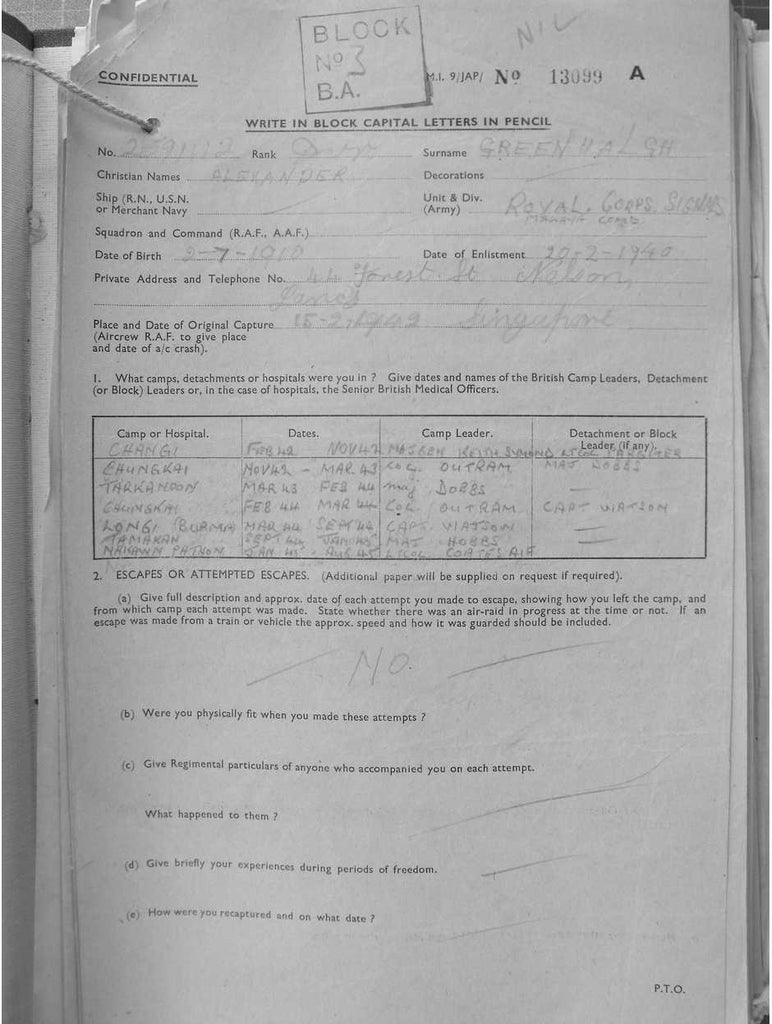 BLOCK
Nº 3
B.A.
NIL
CONFIDENTIAL
M.I. 9/JAP/ Nº 13099 A
WRITE IN BLOCK CAPITAL LETTERS IN PENCIL
No. Rank Surname GREENHALGH
Christian Names ALEXANDER Decorations
Ship (R.N., U.S.N. or Merchant Navy Unit & Div. (Army) ROYAL. CORPS. SIGNALS
MALAYA COMD.
Squadron and Command (R.A.F., A.A.F.)
Date of Birth 2-7-1910 Date of Enlistment 29-2-1940
Private Address and Telephone No. 44 Forest St Nelson,
Lancs
Place and Date of Original Capture 15-2-1942 Singapore
(Aircrew R.A.F. to give place
and date of a/c crash).
1. What camps, detachments or hospitals were you in ? Give dates and names of the British Camp Leaders, Detachment
(or Block) Leaders or, in the case of hospitals, the Senior British Medical Officers.
Camp or Hospital. Dates. Camp Leader. Detachment or Block
Leader (if any).
CHANGI FEB 42 NOV 42 LTCOL
CHUNGKAI NOV 42 - MAR 43 COL. OUTRAM MAJ DOBBS
TARKANOON MAR 43 FEB 44 maj DOBBS —
CHUNGKAI FEB 44 MAR 44 COL. OUTRAM CAPT WATSON
LONGI (BURMA) MAR 44 SEPT 44 CAPT. WATSON —
TAMAKAN SEPT 44 JAN 45 MAJ HOBBS —
NAKAWN PATHON JAN 45 - AUG 45 LTCOL COATES AIF
2. ESCAPES OR ATTEMPTED ESCAPES. (Additional paper will be supplied on request if required).
(a) Give full description and approx. date of each attempt you made to escape, showing how you left the camp, and
from which camp each attempt was made. State whether there was an air-raid in progress at the time or not. If an
escape was made from a train or vehicle the approx. speed and how it was guarded should be included.
NO.
(b) Were you physically fit when you made these attempts ?
(c) Give Regimental particulars of anyone who accompanied you on each attempt.
What happened to them ?
(d) Give briefly your experiences during periods of freedom.
(e) How were you recaptured and on what date ?
P.T.O.